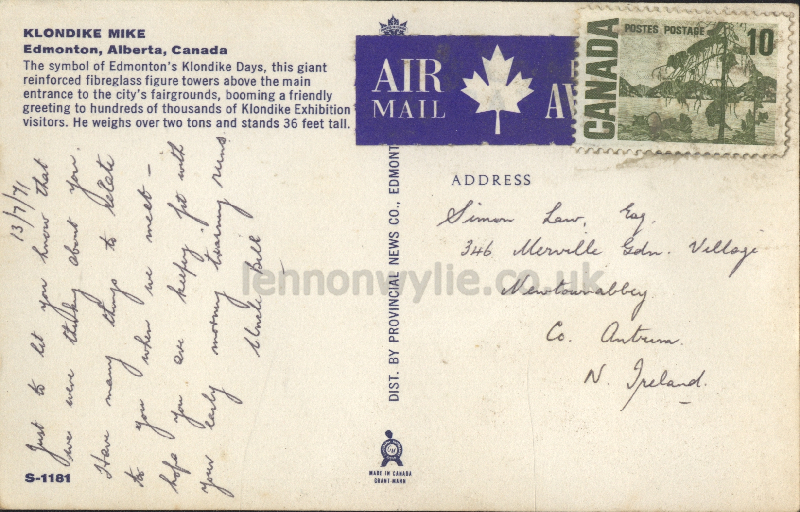 KLONDIKE MIKE
Edmonton, Alberta, Canada
The symbol of Edmonton's Klondike Days, this giant
reinforced fibreglass figure towers above the main
entrance to the city's fairgrounds, booming a friendly
greeting to hundreds of thousands of Klondike Exhibition
visitors. He weighs over two tons and stands 36 feet tall.
13/7/71
Just to let you know that
we were thinking about you.
Have many things to relate
to you when we meet -
hope you are keeping fit with
your early morning training runs.
Uncle Bill
S-1181
DIST. BY PROVINCIAL NEWS CO., EDMONT
MADE IN CANADA
GRANT-MANN
AIR
MAIL
AV
CANADA
POSTES POSTAGE
10
ADDRESS
Simon Law, Esq.
346 Merville Gdn. Village
Newtownabbey
Co. Antrim.
N. Ireland.
lennonwylie.co.uk